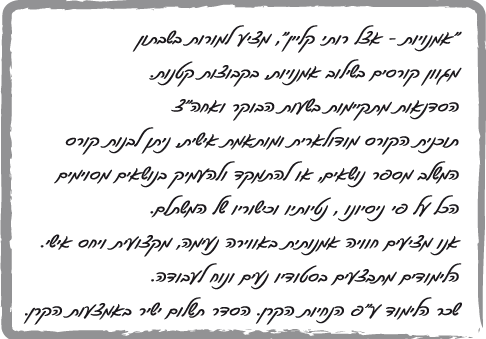 "אמנויות - אצל רותי קליין", מציע למורות בשבתון
מגוון קורסים בשילוב אמנויות, בקבוצות קטנות.
הסדנאות מתקיימות בשעות הבוקר ואחה"צ
תוכנית הקורס מודולארית ומותאמת אישית, ניתן לבנות קורס
המשלב מספר נושאים, או להתמקד ולהעמיק בנושאים מסוימים
הכל על פי ניסיונו , נטיותיו וכישוריו של המשתלם.
אנו מציעים חוויה אמנותית באווירה נעימה, מקצועית ויחס אישי.
הלימודים מתבצעים בסטודיו נעים ונוח לעבודה.
שכר הלימוד ע"פ הנחיות הקרן. הסדר תשלום ישיר באמצעות הקרן.